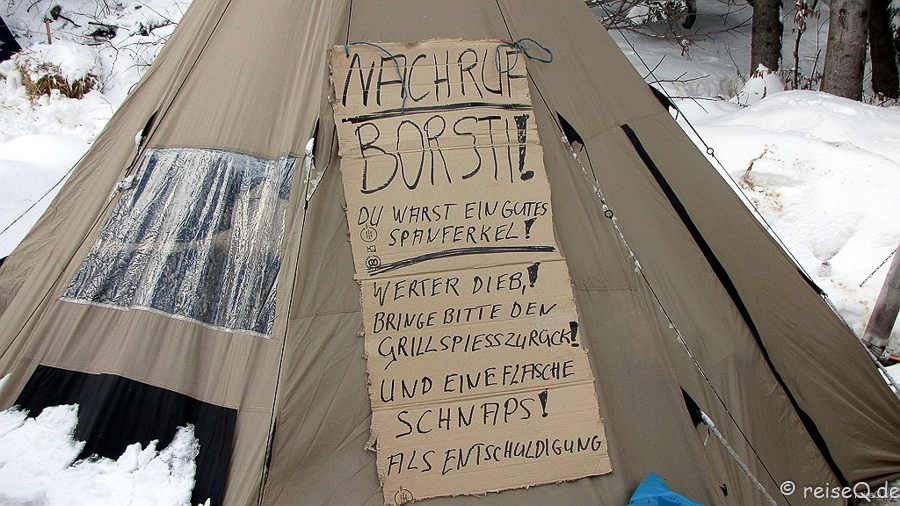 NACHRUF
BORSTI!
DU WARST EIN GUTES
SPANFERKEL!
WERTER DIEB,!
BRINGE BITTE DEN
GRILLSPIESS ZURÜCK!
UND EINE FLASCHE
SCHNAPS!
ALS ENTSCHULDIGUNG
© reiseQ.de